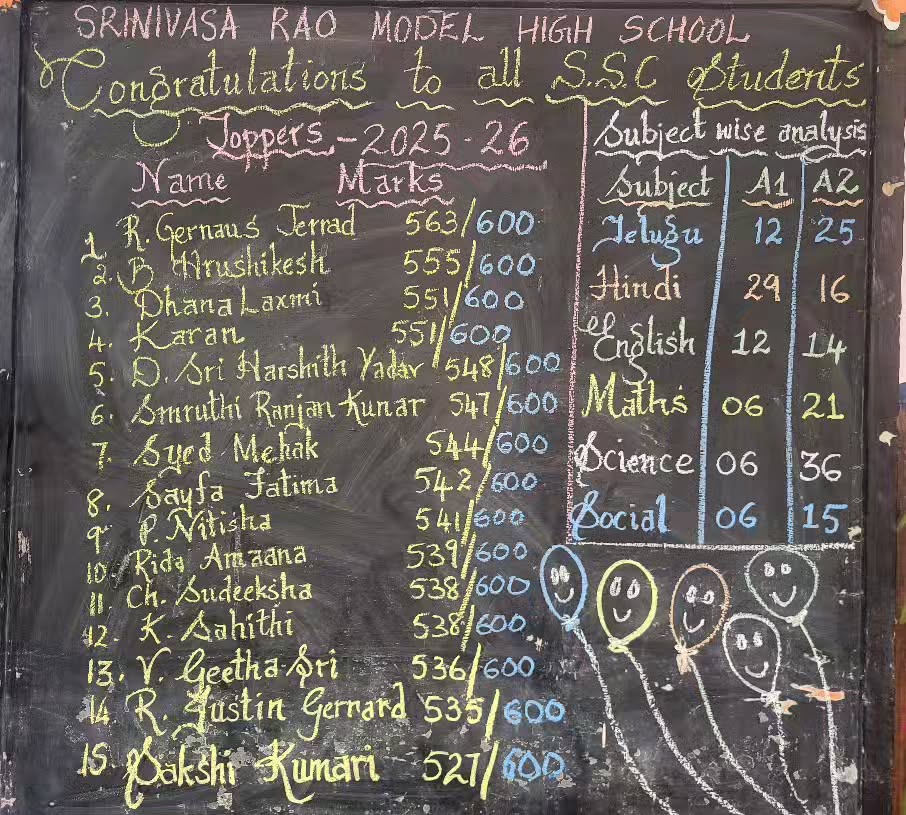 SRINIVASA RAO MODEL HIGH SCHOOL
Congratulations to all S.S.C Students
Toppers - 2025-26
Name Marks
1. R. Gernaus Jerrad 563/600
2. B Hrushikesh 555/600
3. Dhana Laxmi 551/600
4. Karan 551/600
5. D. Sri Harshith Yadav 548/600
6. Smruthi Ranjan Kunar 547/600
7. Syed Mehak 544/600
8. Sayfa Fatima 542/600
9. P. Nitisha 541/600
10. Rida Amaana 539/600
11. Ch. Sudeeksha 538/600
12. K. Sahithi 538/600
13. V. Geetha Sri 536/600
14. R. Justin Gernard 535/600
15. Sakshi Kumari 527/600
Subject wise analysis
Subject A1 A2
Telugu 12 25
Hindi 29 16
English 12 14
Maths 06 21
Science 06 36
Social 06 15